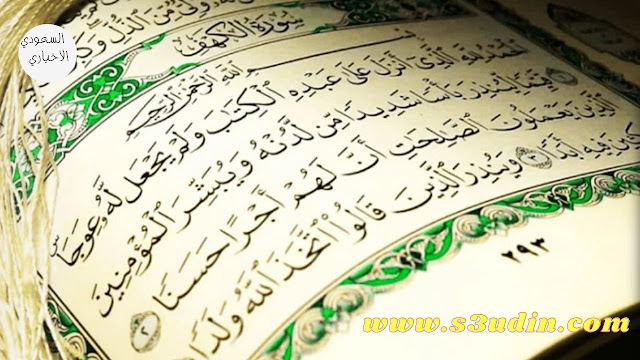 السعودي
الاخباري
مِّنَ ٱلذُّلِّ
سُورَةُ الكَهْفِ
ٱللَّهِ ٱلرَّحْمَٰنِ ٱلرَّحِيمِ
ٱلَّذِىٓ أَنزَلَ عَلَىٰ عَبْدِهِ ٱلْكِتَٰبَ وَلَمْ يَجْعَل لَّهُۥ عِوَجَاۜ
قَيِّمًا لِّيُنذِرَ بَأْسًا شَدِيدًا مِّن لَّدُنْهُ وَيُبَشِّرَ ٱلْمُؤْمِنِينَ
ٱلَّذِينَ يَعْمَلُونَ ٱلصَّٰلِحَٰتِ أَنَّ لَهُمْ أَجْرًا حَسَنًا ٢
فِيهِ أَبَدًا ٣ وَيُنذِرَ ٱلَّذِينَ قَالُوا۟ ٱتَّخَذَ ٱللَّهُ وَلَدًا
٢٩٣
www.s3udin.com